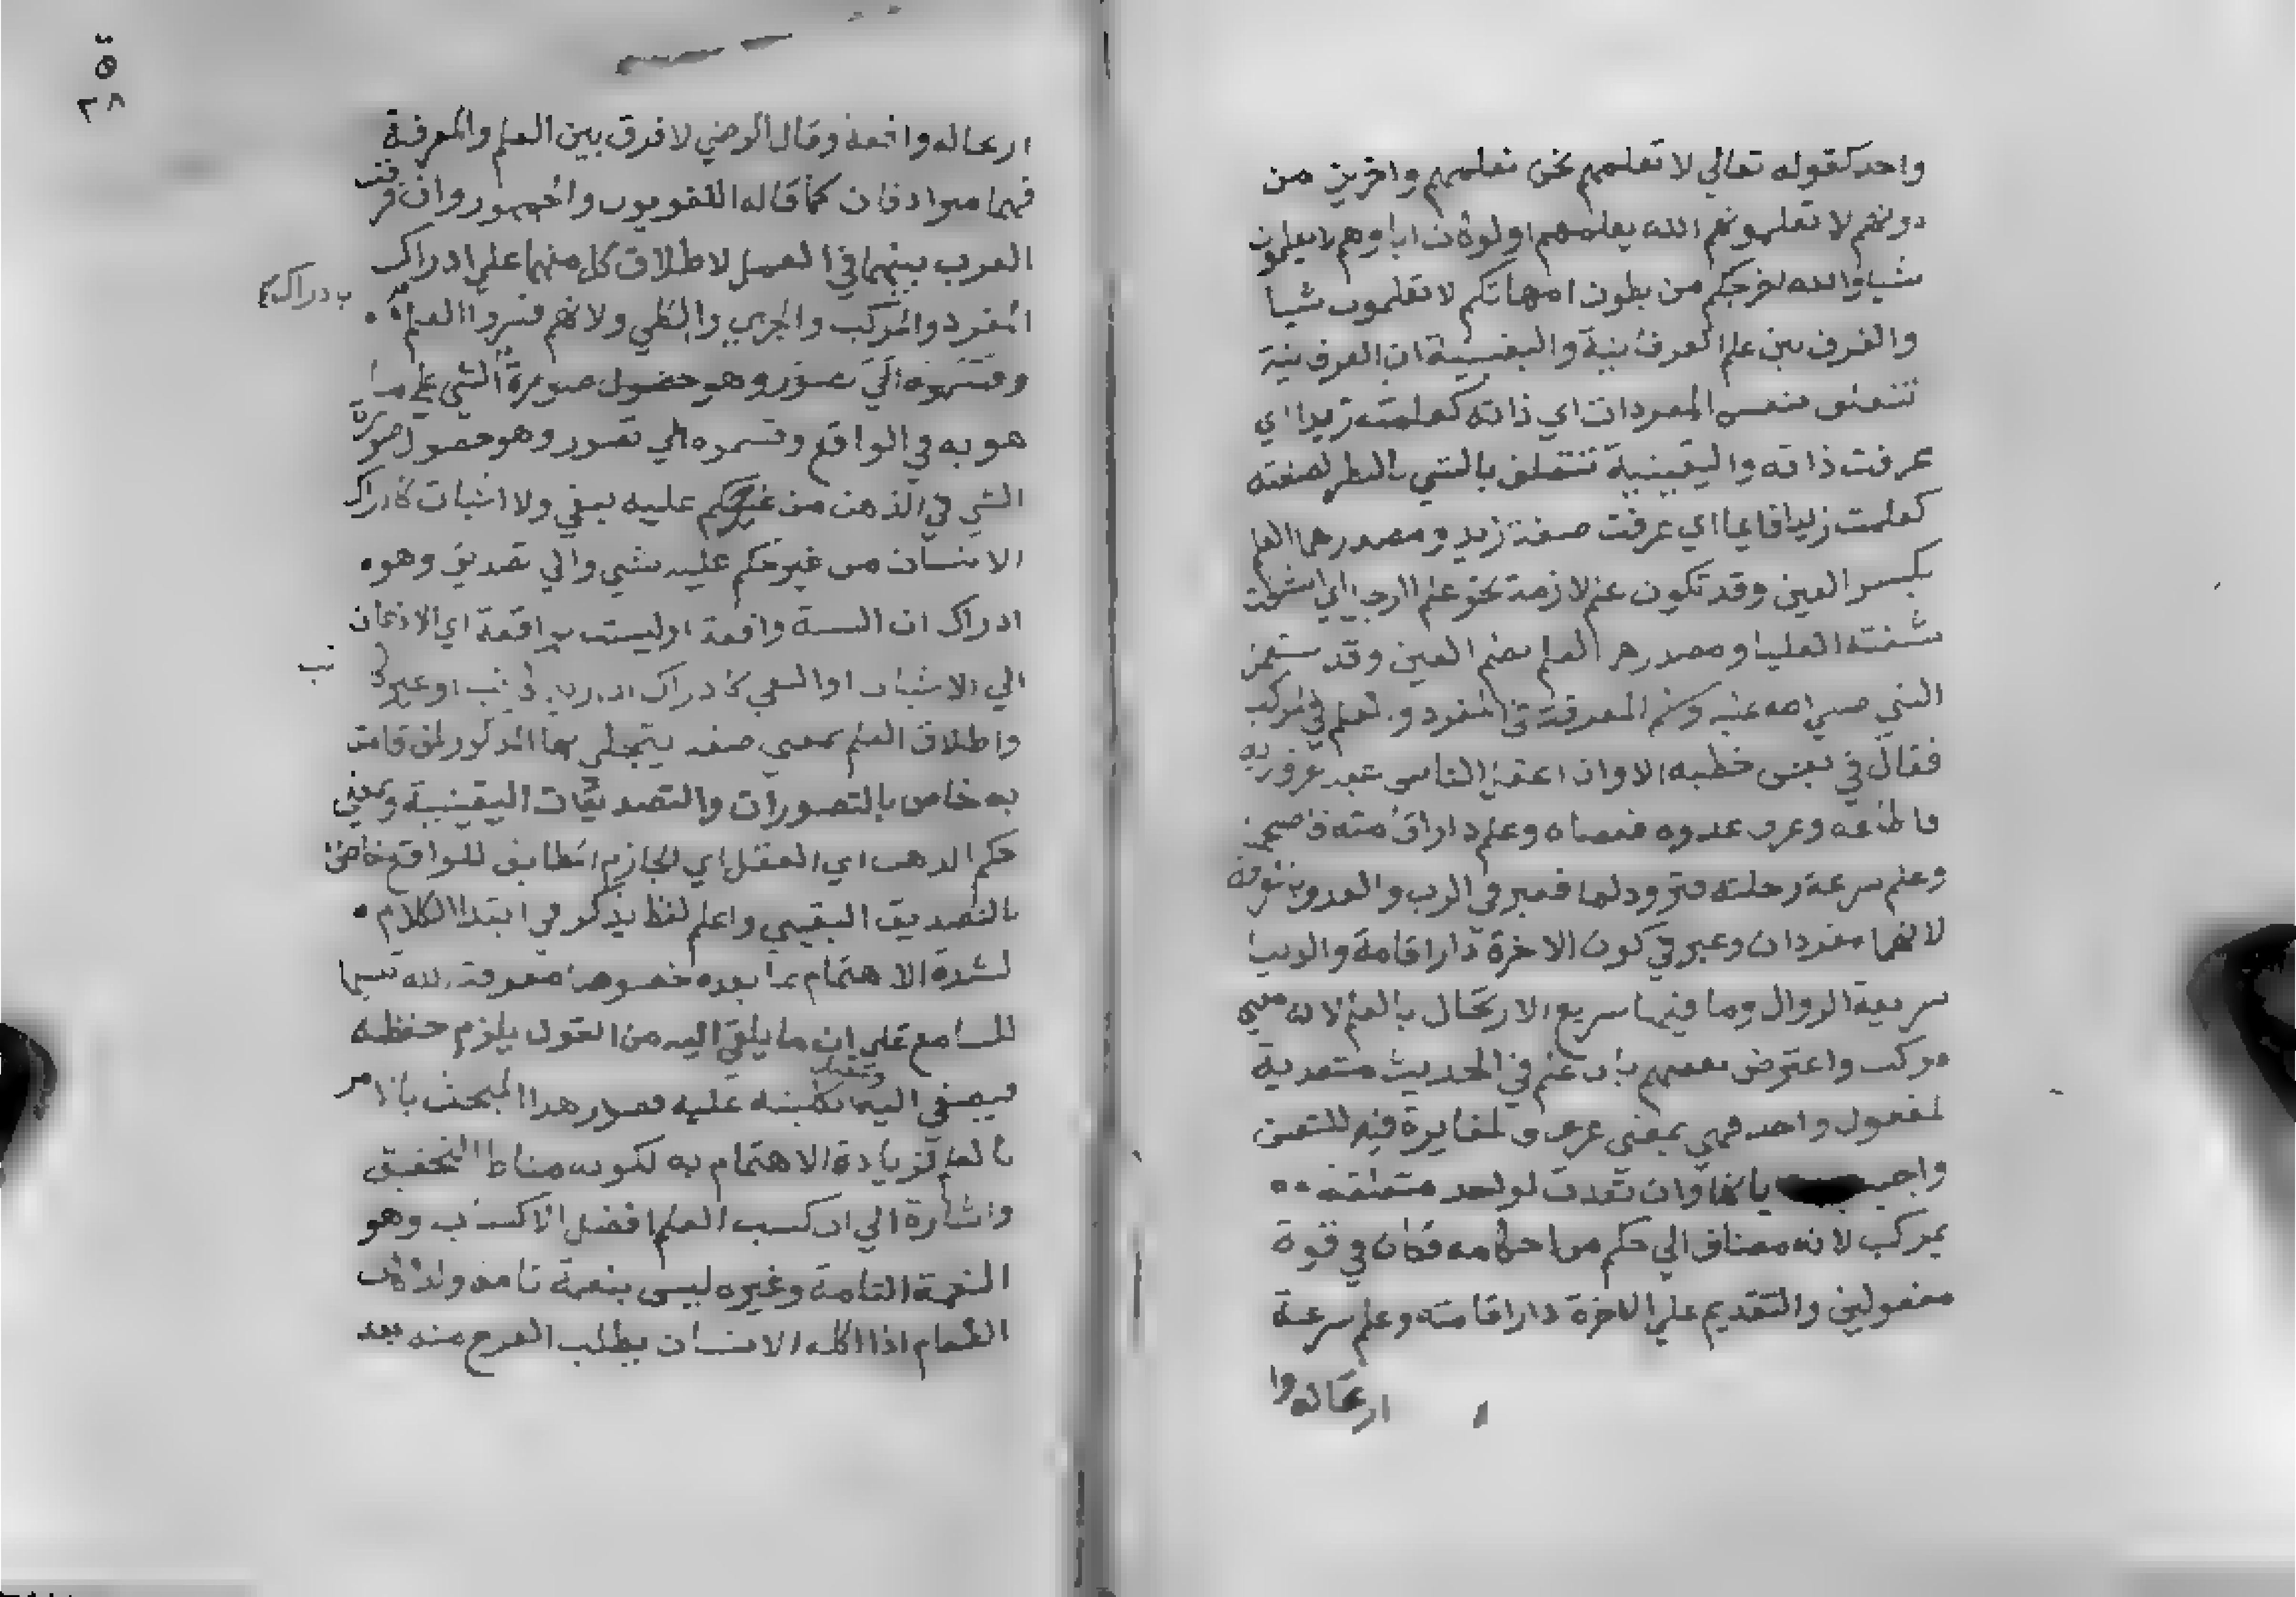 واحد كقوله تعالي لا تعلمهم نحن نعلمهم واخرين من
دونهم لا تعلمونهم الله يعلمهم اولو كان اباوهم لا يعلمون
شيا والله اخرجكم من بطون امهاتكم لا تعلمون شيا
والفرق بين علم العرفانية واليقينية ان العرفانية
تتعلق بنفس المفردات اي ذاته كعلمت زيدا اي
عرفت ذاته واليقينية تتعلق بالشي بالنظر لصفته
كعلمت زيدا قايما اي عرفت صفة زيد ومصدرهما العلم
بكسر العين وقد تكون علم لازمة نحو علم الرجل اي انشقت
شفته العليا ومصدرها العلم بضم العين وقد
النبي صلي الله عليه وسلم المعرفة في المفرد والعلم في المركب
فقال في بعض خطبه الا وان اعقل الناس عبد عرف ربه
فاطاعه وعرف عدوه فعصاه وعلم دار اقامته فاصلحها
وعلم سرعة رحلته فتزود لها فعبر في الرب والعدو بعرف
لانهما مفردان وعبر في كون الاخرة دار اقامة والدنيا
سريعة الزوال وما فيها سريع الارتحال بالعلم لانه معني
مركب واعترض بعضهم بان علم في الحديث متعدية
لمفعول واحد فهي بمعني عرف والمغايرة فيه للتفنن
واجيب بانها وان تعدت لواحد متعلقه
بمركب لانه مضاف الي حكم من احكامه فكان في قوة
مفعولين والتقديم علم الاخرة دار اقامته وعلم سرعة
ارتحاله وا
٢٨
ارتحاله واقعة وقال الرضي لا فرق بين العلم والمعرفة
فهما مترادفان كما قاله اللغويون والجمهور وان فرقت
العرب بينهما في العمل لاطلاق كل منهما علي ادراك
المفرد والمركب والجزيي والكلي ولانهم فسروا العلم
بادراك
وقسموه الي تصور وهو حصول صورة الشي علي ما
هو به في الواقع وقسموه الي تصور وهو حصول صورة
الشي في الذهن من غير حكم عليه بنفي ولا اثبات كادراك
الانسان من غير حكم عليه بشي والي تصديق وهو
ادراك ان النسبة واقعة او ليست بواقعة اي الاذعان
الي الاثبات او النفي كادراك ان زيد كاتب او غير كا
تب
واطلاق العلم بمعني صفة يتجلي بها المذكور لمن قامت
به خاص بالتصورات والتصديقات اليقينية وبمعني
حكم الذهن اي العقل اي الجازم المطابق للواقع خاص
بالتصديق اليقيني واعلم لفظ يذكر في ابتدا الكلام
لشدة الاهتمام بما بعده خصوصا معرفة الله تنبيها
للسامع علي ان ما يلقي اليه من القول يلزم حفظه
فيصغي اليه بكليته عليه فصدر هذا المبحث بالامر
بالعلم لزيادة الاهتمام به لكونه مناط التحقيق
واشارة الي ان كسب العلم افضل الاكتساب وهو
النعمة التامة وغيره ليس بنعمة تامة ولذا كان
الطعام اذا اكله الانسان يطلب الفرج منه بعد